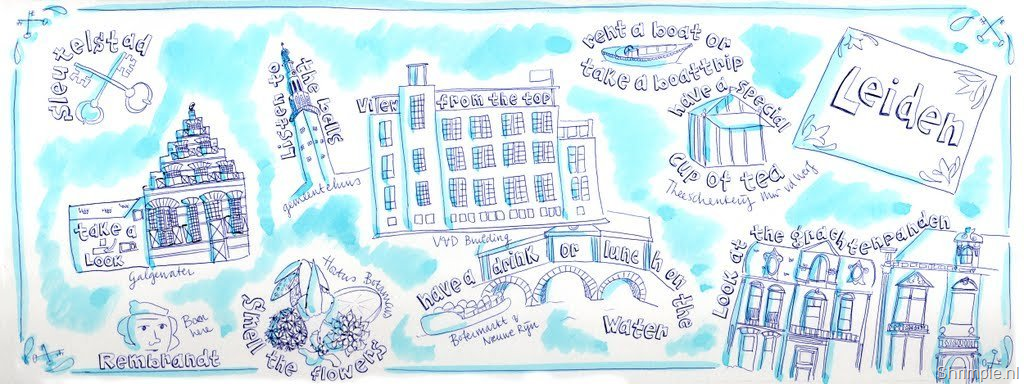 Sleutelstad
Listen to
the bells
gemeentehuis
View from the top
VVD Building
rent a boat or
take a boattrip
have a special
cup of tea
Theeschenkerij
Leiden
take a
Look
Galgewater
Born
here
Rembrandt
Hortus Botanicus
Smell
the flowers
have a drink or lunch on the
Water
Botermarkt &
Nieuwe Rijn
Look at the grachtenpanden
Shrimpie.nl